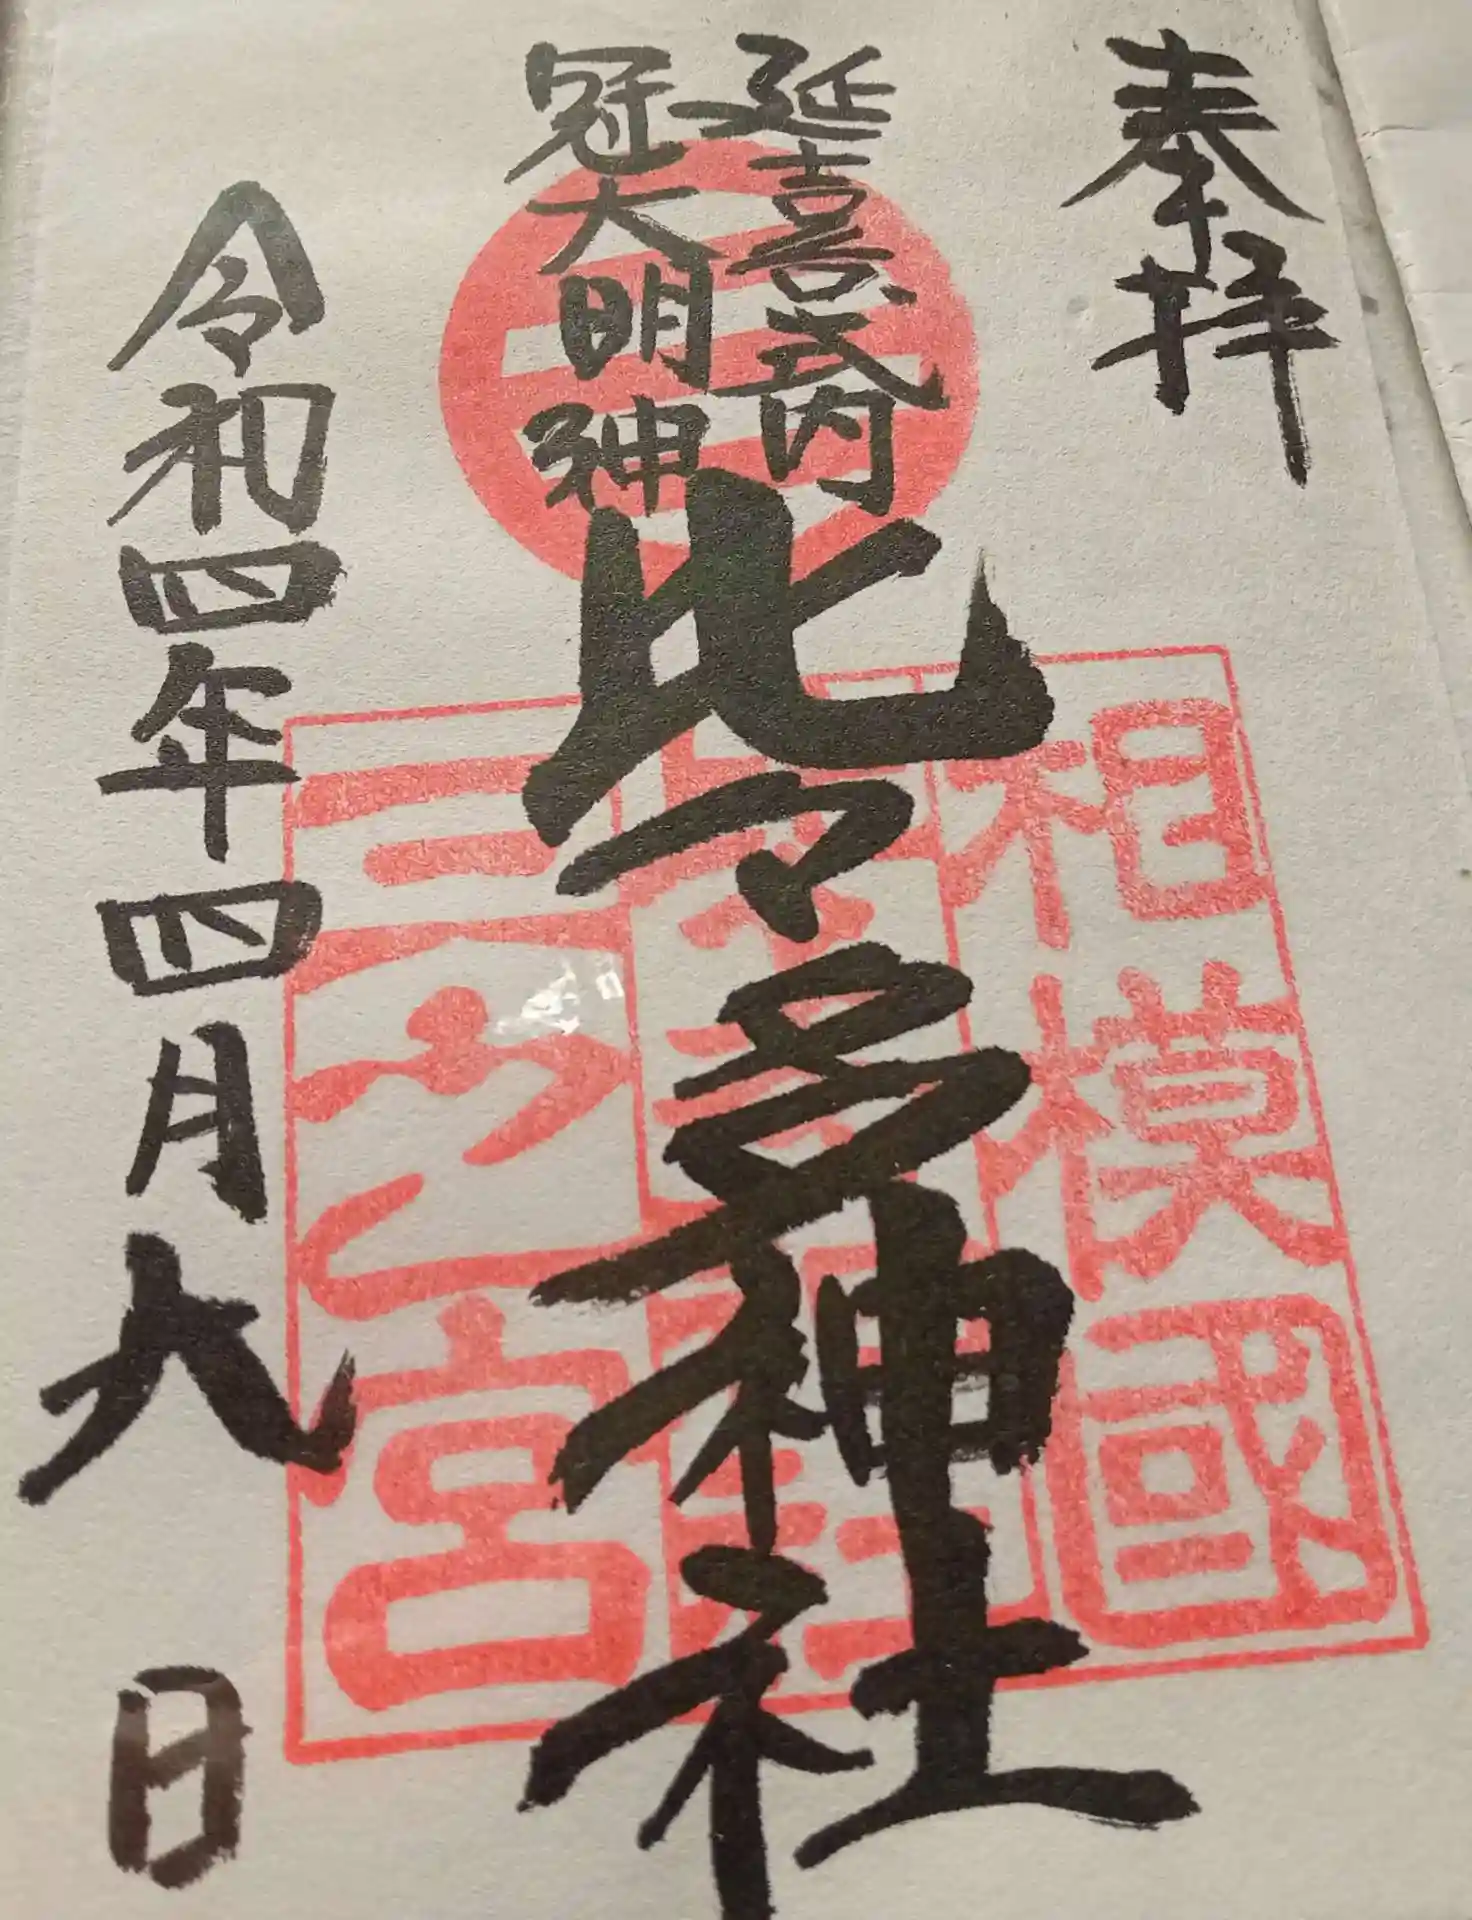 奉拝
延喜式内
冠大明神
比々多神社
令和四年四月九日
相模國
三之宮